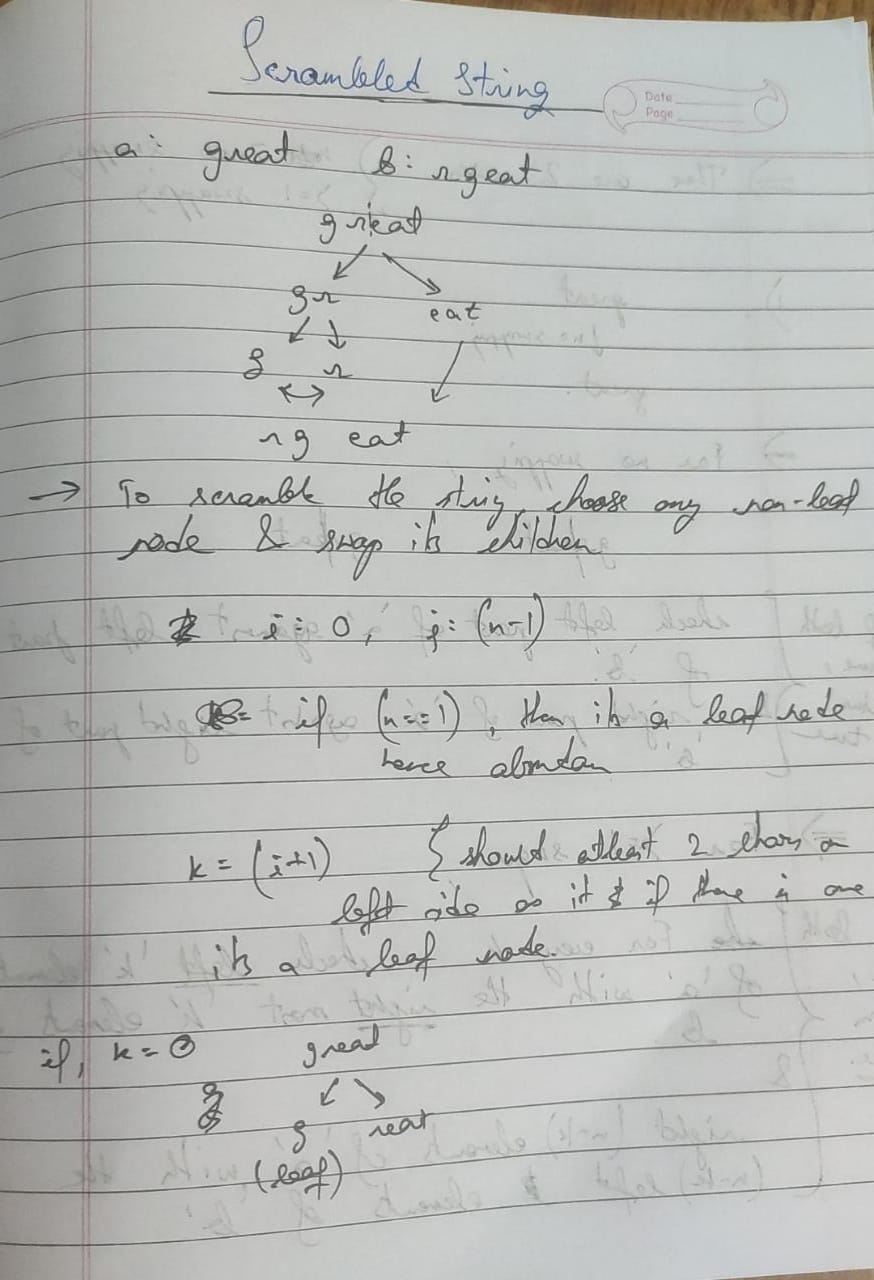 Scrambled String
Date
Page
a: great b: rgeat
great
gr eat
g r
rg eat
→ To scramble the string, choose any non-leaf
node & swap its children
i = 0, j = (n-1)
if (n==1), then its a leaf node
hence
k = (i+1) { should atleast 2 chars
left side if there is one
its a leaf node.
if, k = 0 great
g reat
(leaf)